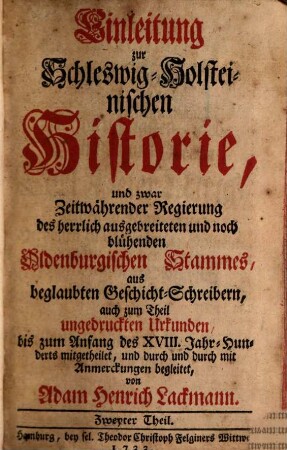 Einleitung
zur
Schleswig-Holstei-
nischen
Historie,
und zwar
Zeitwährender Regierung
des herrlich ausgebreiteten und noch
blühenden
Oldenburgischen Stammes,
aus
beglaubten Geschicht-Schreibern,
auch zum Theil
ungedruckten Urkunden,
bis zum Anfang des XVIII. Jahr-Hun-
derts mitgetheilet, und durch und durch mit
Anmerckungen begleitet,
von
Adam Henrich Lackmann.
Zweyter Theil.
Hamburg, bey sel. Theodor Christoph Felginers Wittwe
1733